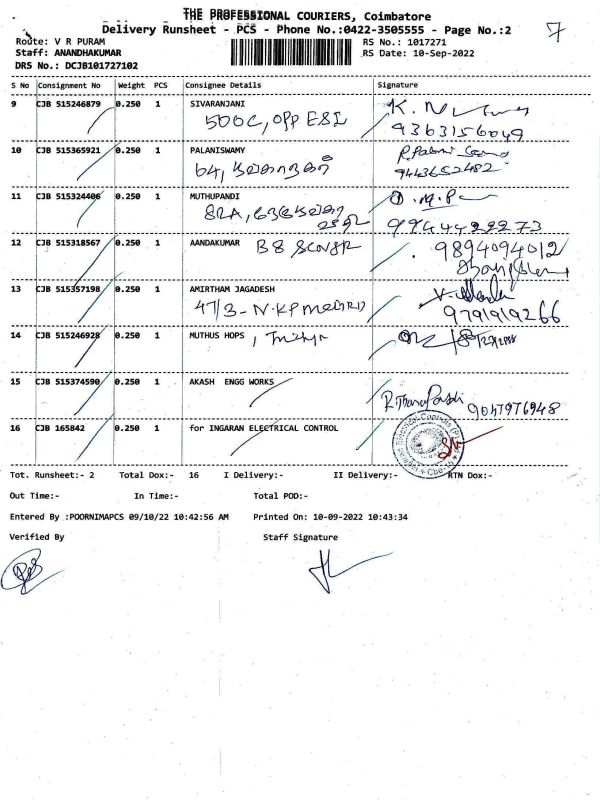 THE PROFESSIONAL COURIERS, Coimbatore
Delivery Runsheet - PCS - Phone No.:0422-3505555 - Page No.:2
7
Route: V R PURAM
RS No.: 1017271
Staff: ANANDHAKUMAR
RS Date: 10-Sep-2022
DRS No.: DCJB101727102
S No Consignment No Weight PCS Consignee Details Signature
9 CJB 515246879 0.250 1 SIVARANJANI
500C, OPP ESI
9363156049
10 CJB 515365921 0.250 1 PALANISWAMY
64,
9443652482
11 CJB 515324406 0.250 1 MUTHUPANDI
82A,
9944422273
12 CJB 515318567 0.250 1 AANDAKUMAR B8 9894094012
13 CJB 515357198 0.250 1 AMIRTHAM JAGADESH
47/3-N.K.P
9791919266
14 CJB 515246928 0.250 1 MUTHUS HOPS
15 CJB 515374590 0.250 1 AKASH ENGG WORKS
9047976948
16 CJB 165842 0.250 1 for INGARAN ELECTRICAL CONTROL
Tot. Runsheet:- 2 Total Dox:- 16 I Delivery:- II Delivery:- RTN Dox:-
Out Time:- In Time:- Total POD:-
Entered By :POORNIMAPCS 09/10/22 10:42:56 AM Printed On: 10-09-2022 10:43:34
Verified By Staff Signature